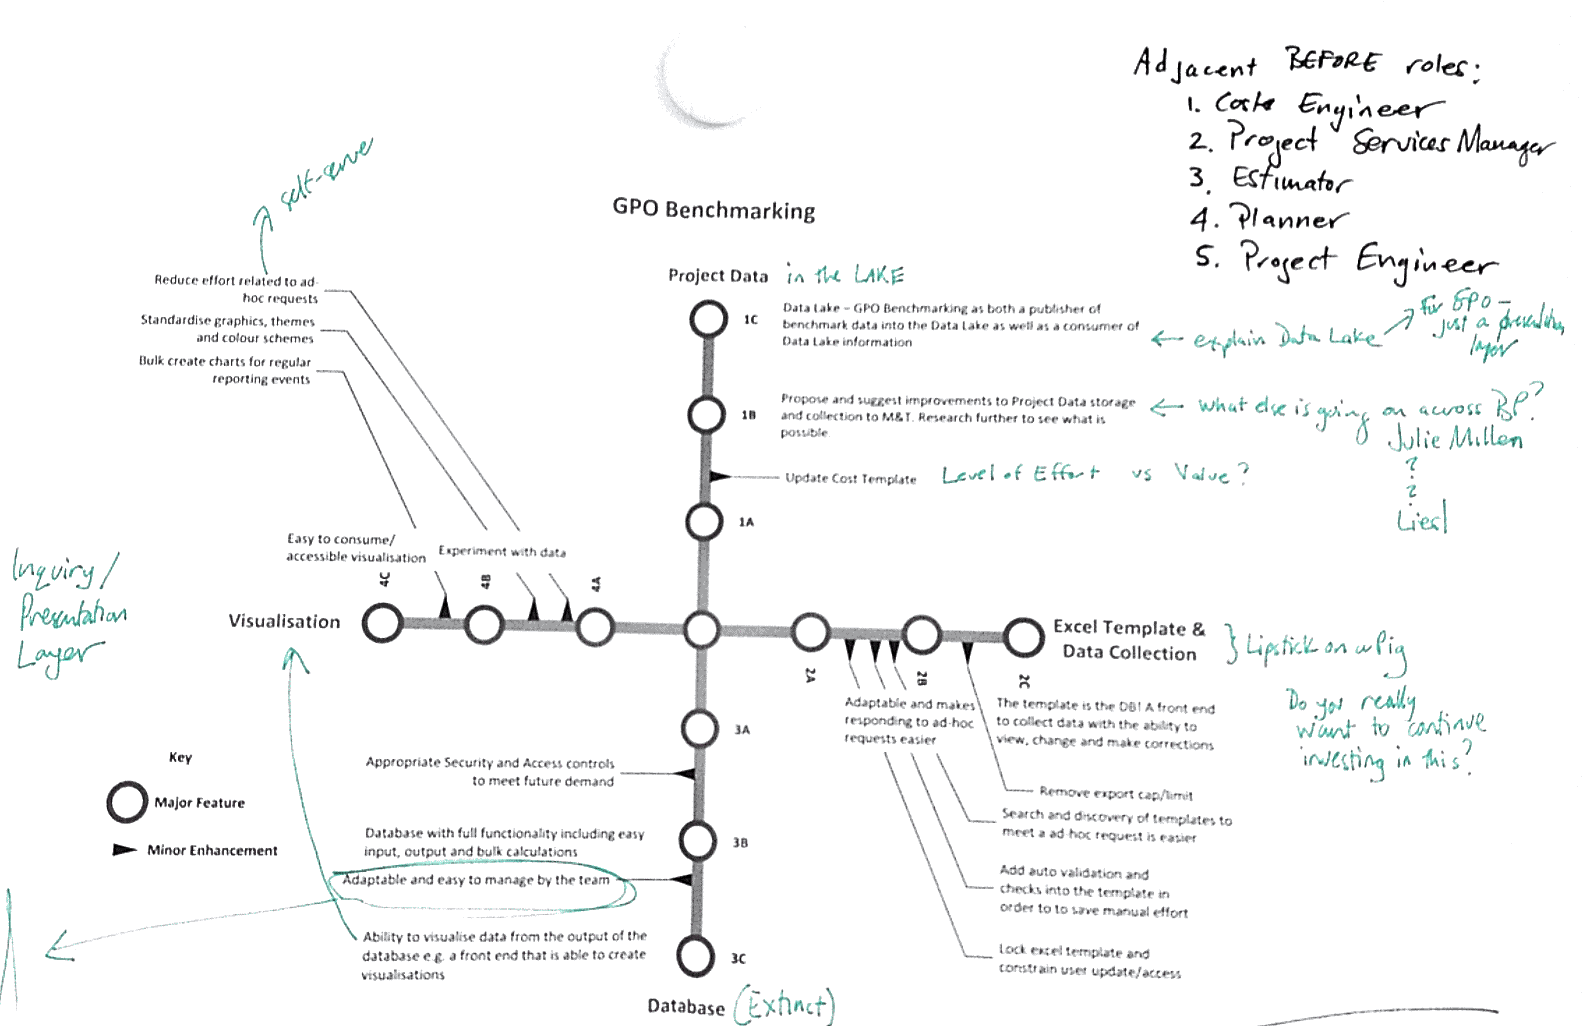 Adjacent BEFORE roles:
1. Costs Engineer
2. Project Services Manager
3. Estimator
4. Planner
5. Project Engineer
self-serve
GPO Benchmarking
Project Data in the LAKE
Reduce effort related to ad-
hoc requests
Standardise graphics, themes
and colour schemes
Bulk create charts for regular
reporting events
1C
Data Lake – GPO Benchmarking as both a publisher of
benchmark data into the Data Lake as well as a consumer of
Data Lake information
← explain Data Lake
For GPO –
just a presentation
layer
1B
Propose and suggest improvements to Project Data storage
and collection to M&T. Research further to see what is
possible.
← What else is going on across BP?
Julie Millen
?
?
Liesl
Update Cost Template Level of Effort vs Value?
1A
Easy to consume/
accessible visualisation
Experiment with data
4C
4B
4A
Inquiry/
Presentation
Layer
Visualisation
2A
2B
2C
Excel Template &
Data Collection
} Lipstick on a Pig
Do you really
want to continue
investing in this?
Adaptable and makes
responding to ad-hoc
requests easier
The template is the DB! A front end
to collect data with the ability to
view, change and make corrections
Remove export cap/limit
Search and discovery of templates to
meet a ad-hoc request is easier
Add auto validation and
checks into the template in
order to to save manual effort
Lock excel template and
constrain user update/access
3A
Appropriate Security and Access controls
to meet future demand
3B
Database with full functionality including easy
input, output and bulk calculations
Adaptable and easy to manage by the team
Ability to visualise data from the output of the
database e.g. a front end that is able to create
visualisations
3C
Database (Extinct)
Key
Major Feature
Minor Enhancement